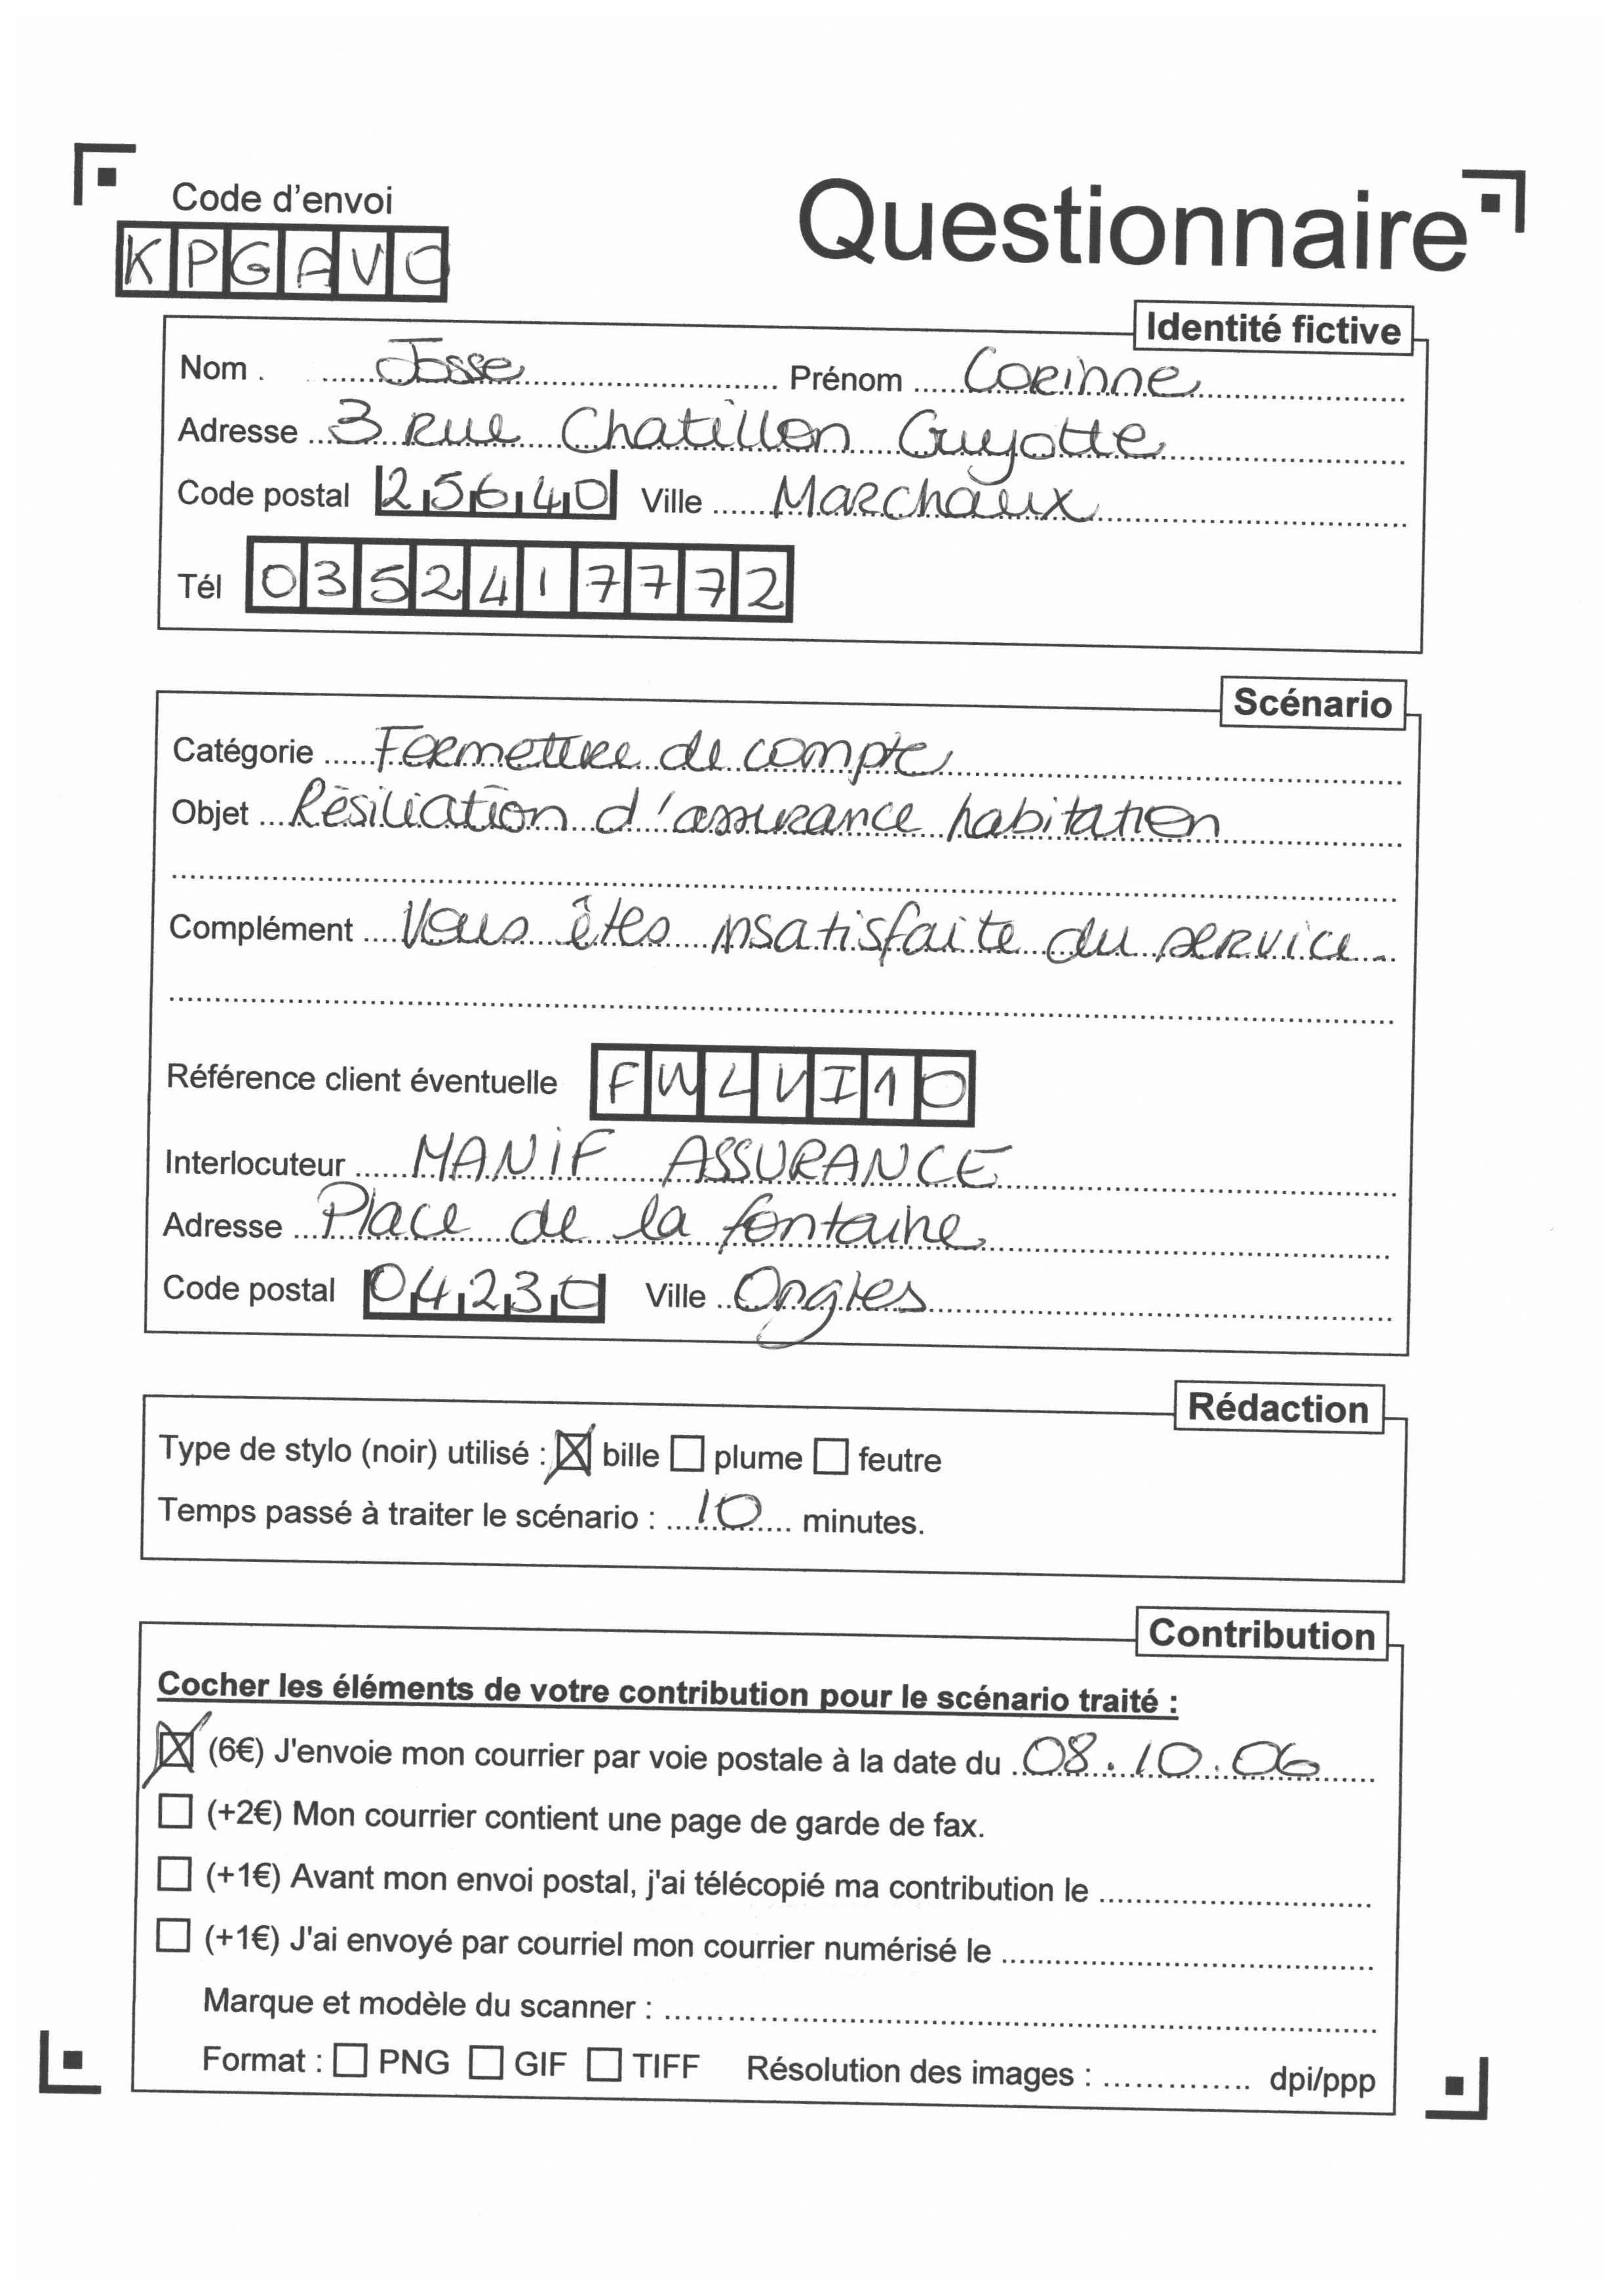 Code d'envoi
KPGAVC
Questionnaire
Identité fictive
Nom . Josse Prénom Corinne
Adresse 3 Rue Chatillon Guyotte
Code postal 25640 Ville Marchaux
Tél 0352417772
Scénario
Catégorie Fermeture de compte
Objet Résiliation d'assurance habitation
Complément Vous êtes insatisfaite du service.
Référence client éventuelle FWLVI10
Interlocuteur MANIF ASSURANCE
Adresse Place de la fontaine
Code postal 04230 Ville Ongles
Rédaction
Type de stylo (noir) utilisé : ☒ bille ☐ plume ☐ feutre
Temps passé à traiter le scénario : 10 minutes.
Contribution
Cocher les éléments de votre contribution pour le scénario traité :
☒ (6€) J'envoie mon courrier par voie postale à la date du 08.10.06
☐ (+2€) Mon courrier contient une page de garde de fax.
☐ (+1€) Avant mon envoi postal, j'ai télécopié ma contribution le
☐ (+1€) J'ai envoyé par courriel mon courrier numérisé le
Marque et modèle du scanner :
Format : ☐ PNG ☐ GIF ☐ TIFF Résolution des images : dpi/ppp